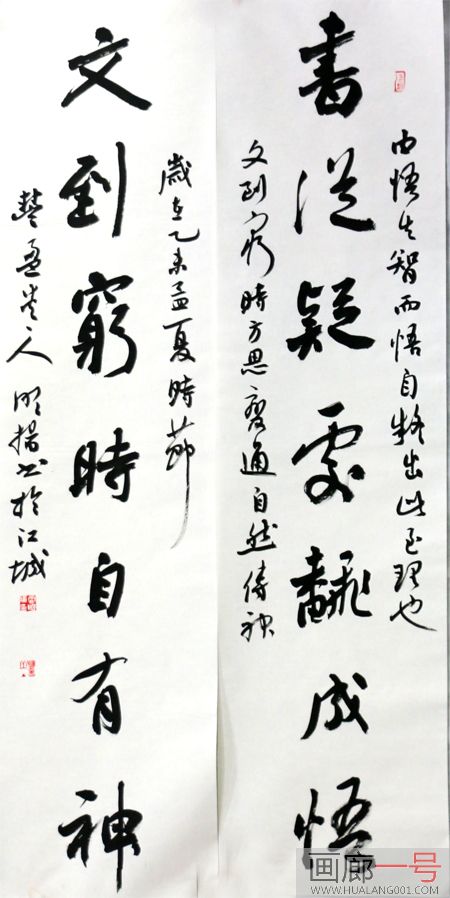 書從疑處翻成悟
由悟生智而悟自疑出此至理也
文到窮時方思變通自然傳神
文到窮時自有神
歲在乙未孟夏時節
楚盈
人明揚书於江城
画廊一号
WWW.HUALANG001.COM